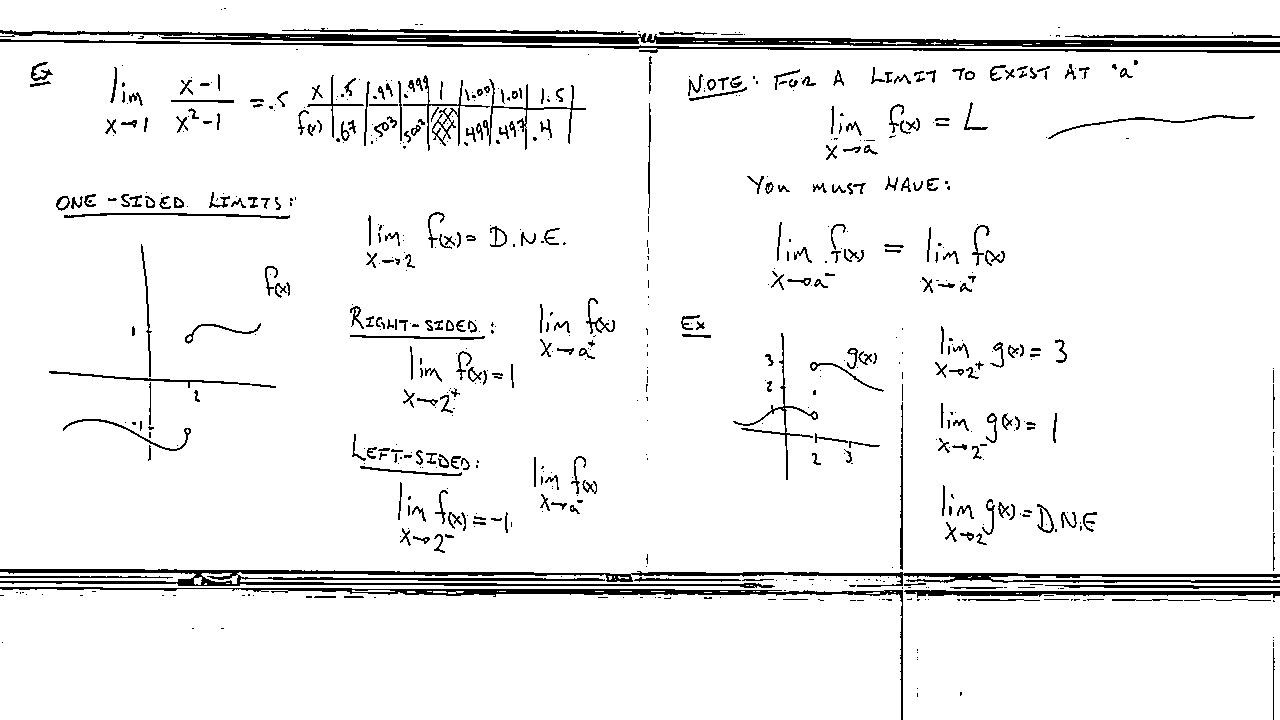 Ex
lim x→1 (x-1)/(x²-1) = .5
x | .5 | .99 | .999 | 1 | 1.001 | 1.01 | 1.5
f(x) | .67 | .503 | .5003 | | .499 | .497 | .4
ONE-SIDED LIMITS:
lim x→2 f(x) = D.N.E.
f(x)
1
2
-1
RIGHT-SIDED: lim x→a⁺ f(x)
lim x→2⁺ f(x) = 1
LEFT-SIDED: lim x→a⁻ f(x)
lim x→2⁻ f(x) = -1
NOTE: FOR A LIMIT TO EXIST AT "a"
lim x→a f(x) = L
YOU MUST HAVE:
lim x→a⁻ f(x) = lim x→a⁺ f(x)
Ex
g(x)
3
2
1
2 3
lim x→2⁺ g(x) = 3
lim x→2⁻ g(x) = 1
lim x→2 g(x) = D.N.E